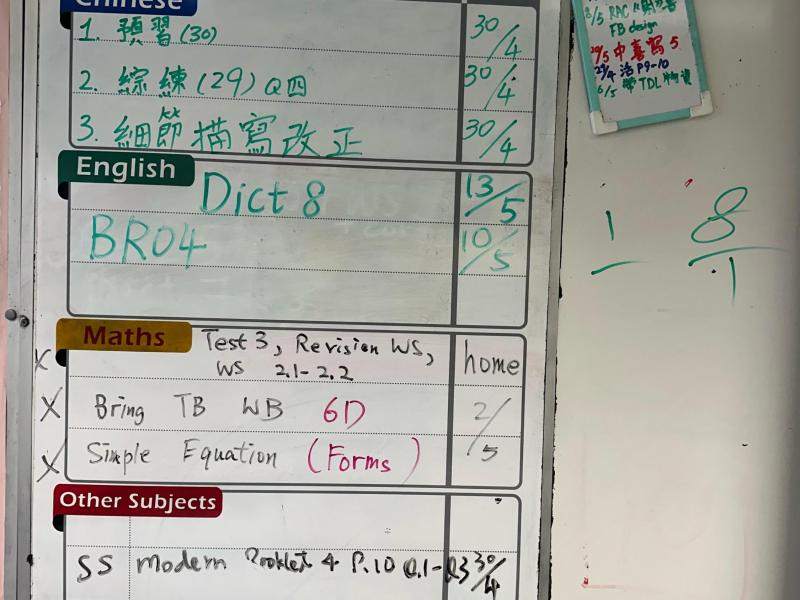 Chinese
1. 預習(30) 30/4
2. 綜練(29) Q四 30/4
3. 細節描寫改正 30/4
English
Dict 8 13/5
BR04 10/5
Maths
Test 3, Revision WS, home
WS 2.1-2.2
Bring TB WB 6D 2/5
Simple Equation (Forms)
Other Subjects
SS modern Booklet 4 P.10 Q.1-Q3 30/4
8/5 RAC
FB design
5
29/4 活 P9-10
6/5 帶 TDL 物資
1 8
1